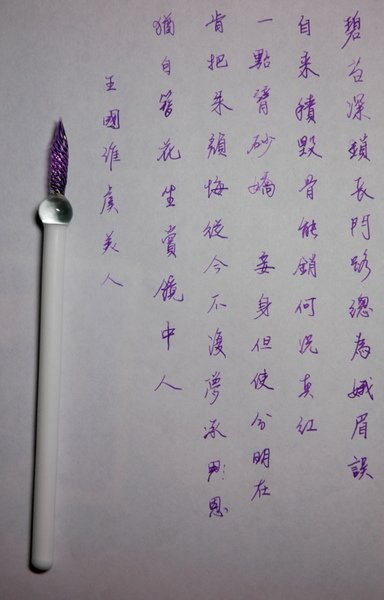 碧苔深鎖長門路總為娥眉誤
自來積毀骨能銷何況真紅
一點臂砂嬌 妾身但使分明在
肯把朱顏悔從今不復夢承恩
猶自簪花生賞鏡中人
王國維虞美人